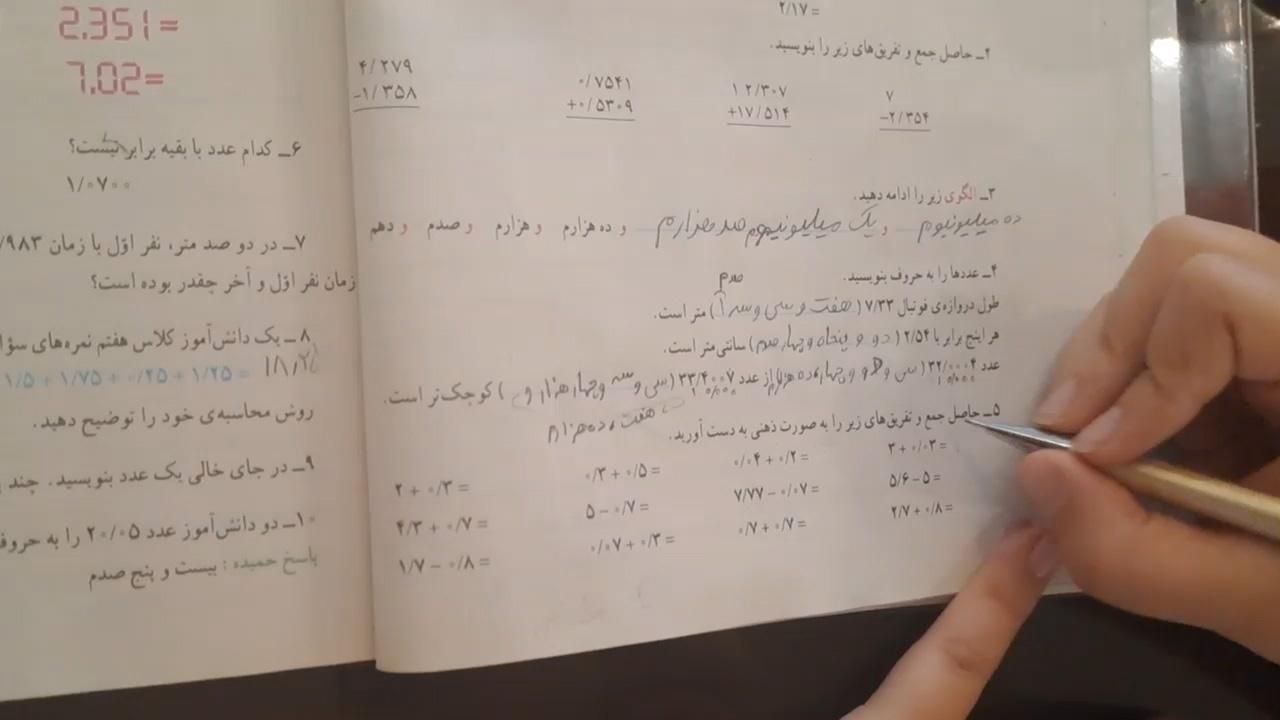 ۲/۱۷ =
۲ـ حاصل جمع و تفریق‌های زیر را بنویسید.
۷ ۱۲/۳۰۷ ۰/۷۵۴۱ ۴/۲۷۹
−۲/۳۵۴ +۱۷/۵۱۴ +۰/۵۳۰۹ −۱/۳۵۸
۳ـ الگوی زیر را ادامه دهید.
دهم و صدم و هزارم و ده هزارم و صد هزارم یک میلیونیوم و ده میلیونیوم
۴ـ عددها را به حروف بنویسید.
صدم
طول دروازه‌ی فوتبال ۷/۳۳ (هفت و سی و سه) متر است.
هر اینچ برابر با ۲/۵۴ (دو و پنجاه و چهار صدم) سانتی‌متر است.
عدد ۳۲/۰۰۰۴ (سی و دو و چهار ده هزارم) از عدد ۳۳/۴۰۰۷ (سی و سه و چهار هزار و) کوچک‌تر است.
۱۰۰۰۰ ۱۰۰۰۰
هفت ده هزارم
۵ـ حاصل جمع و تفریق‌های زیر را به صورت ذهنی به دست آورید.
۳ + ۰/۰۳ = ۰/۰۴ + ۰/۲ = ۰/۳ + ۰/۵ = ۲ + ۰/۳ =
۵/۶ − ۵ = ۷/۷۷ − ۰/۰۷ = ۵ − ۰/۷ = ۴/۳ + ۰/۷ =
۲/۷ + ۰/۸ = ۰/۷ + ۰/۷ = ۰/۰۷ + ۰/۳ = ۱/۷ − ۰/۸ =
2.351=
7.02=
۶ـ کدام عدد با بقیه برابر نیست؟
۱/۰۷۰۰
۷ـ در دو صد متر، نفر اوّل با زمان /۹۸۳
زمان نفر اوّل و آخر چقدر بوده است؟
۸ـ یک دانش‌آموز کلاس هفتم نمره‌های
۱/۵ + ۱/۷۵ + ۰/۲۵ + ۱/۲۵ =
روش محاسبه‌ی خود را توضیح دهید.
۹ـ در جای خالی یک عدد بنویسید. چند
۱۰ـ دو دانش‌آموز عدد ۲۰/۰۵ را به
پاسخ حمیده : بیست و پنج صدم